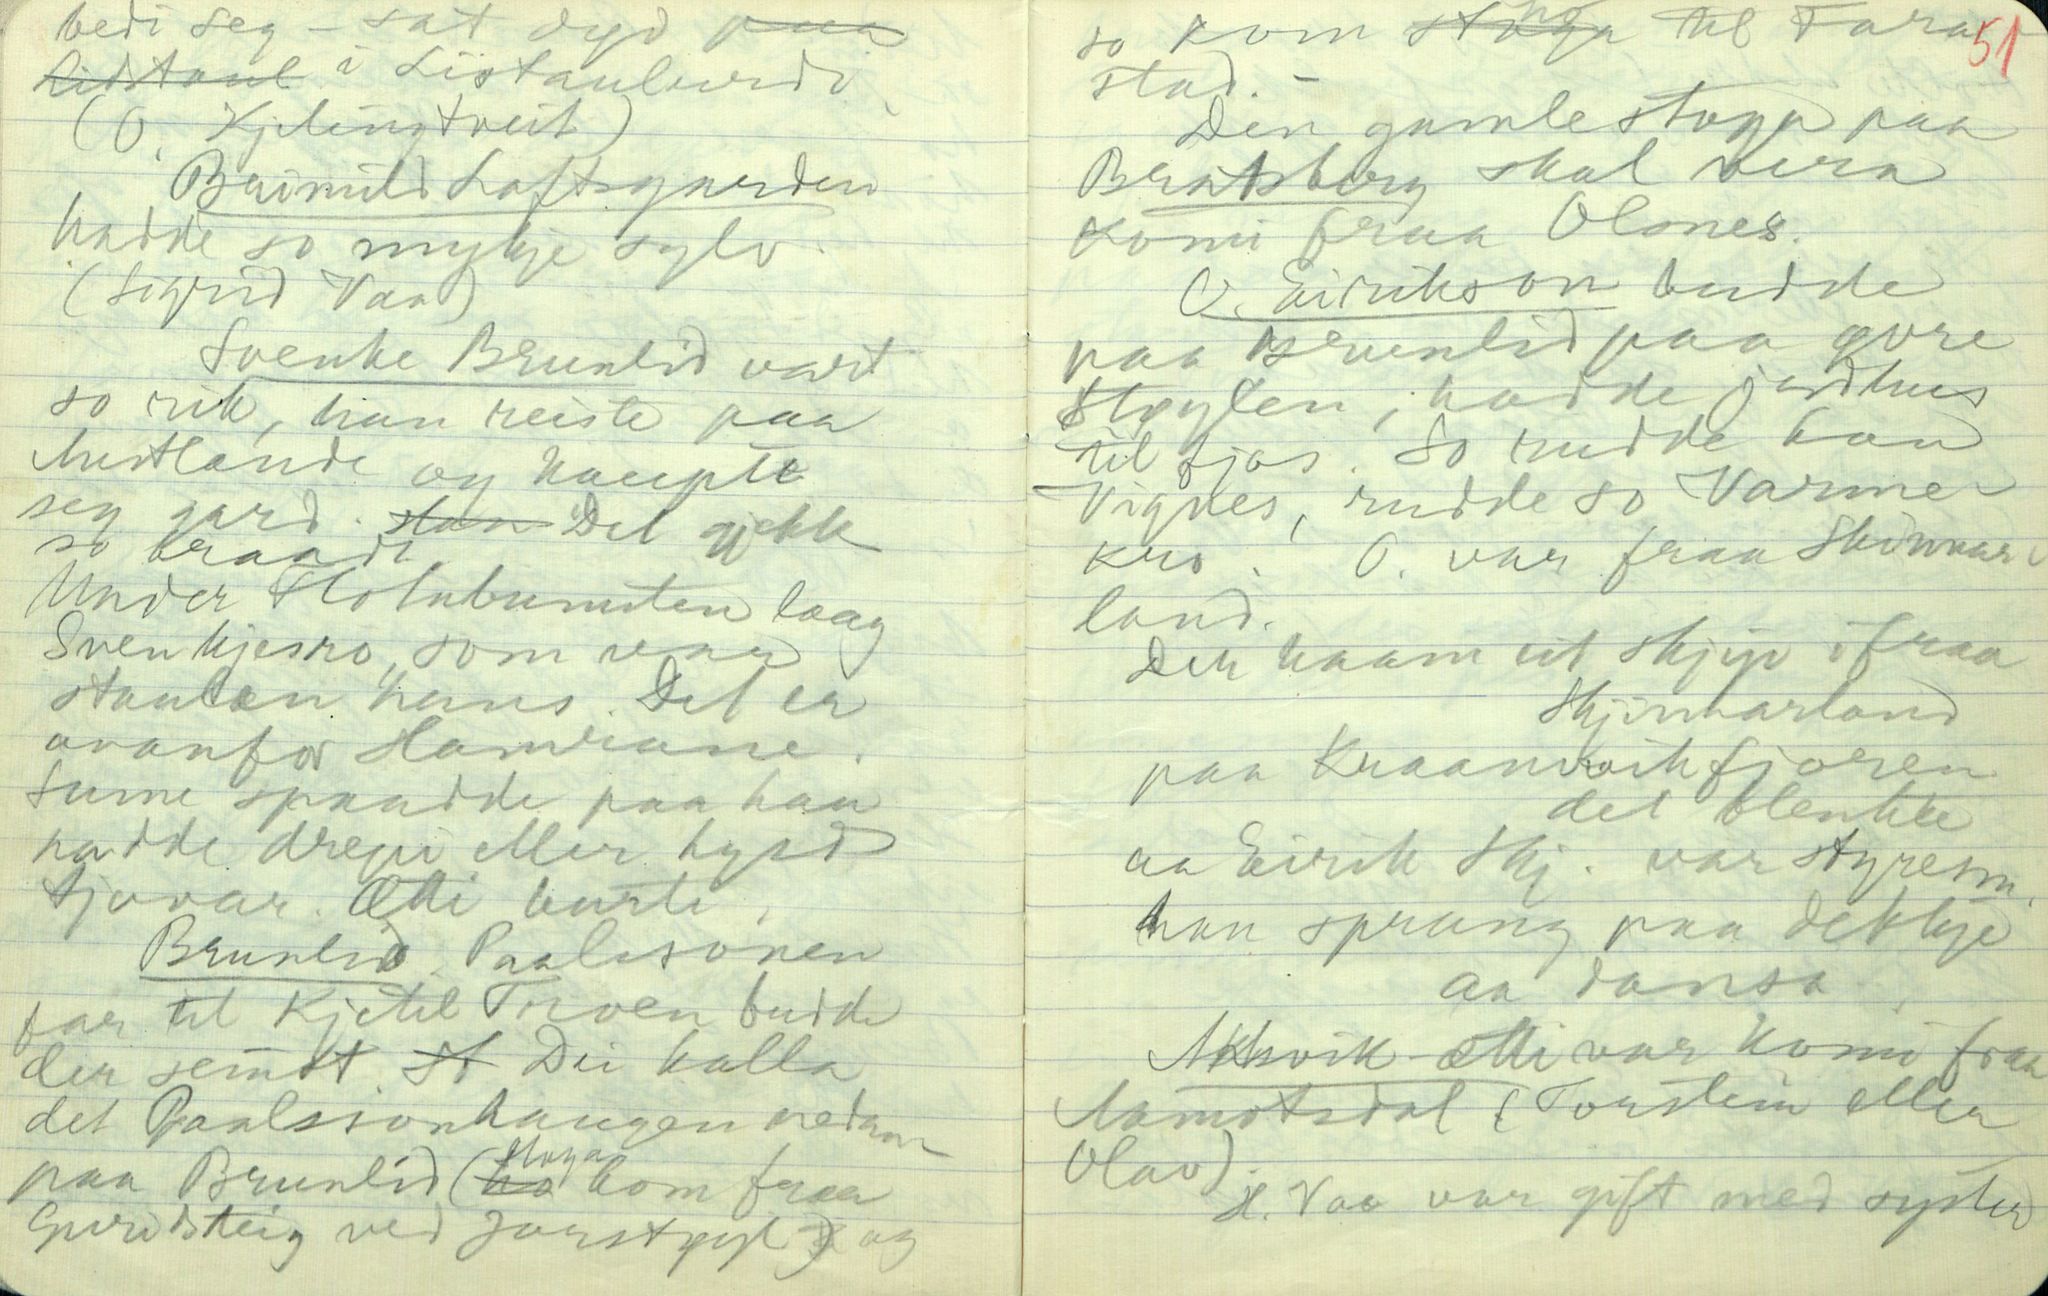 bedi seg - sat dyd ~~paa~~
~~Lidstaul~~ i Listaulurdi
(O. Kjelingtveit)
Brimild Loftsgarden
hadde so mykje sylv.
(Sigrid Vaa)
Svenke Brunlid vart
so rik, han reiste paa
Austlande og kaupte
seg gard. ~~Han~~ Det gjekk
so braadt
Under Holnbunuten laag
Svenkjesro, som var
staulen hans. Det er
ovanfor Hamrane.
Sume spaadde paa han
hadde drepi eller hyst
tjovar. Ætti burte.
Brunlid. Paalsonen
far til Kjetil Torven budde
der seinst. ~~St~~ Dei kalla
det Paalssonhaugen nedan
paa Brunlid (~~ho~~ stoga kom fraa
Guridsteig ved Jorstøyl) og
51
so kom ~~stoga~~ ho til Tara
stad. -
Den gamle stoga paa
Bratsberg skal vera
komi fraa Olsnes.
O. Eirikson budde
paa Brunlid paa øvre
Støylen, hadde jordhus
til fjos. So rudde han
Vignes, rudde so Varme-
kro. O. var fraa Skinvar-
land.
Der kaam eit skjip ifraa
Skjinvarland
paa Kraamvikfjoren
det blenkte
aa Eirik Skj. var styresm.
han sprang paa dekkje
aa dansa.
Aksvik-ætti var komi fraa
Aamotsdal (Torstein eller
Olav).
H. Vaa var gift med syster